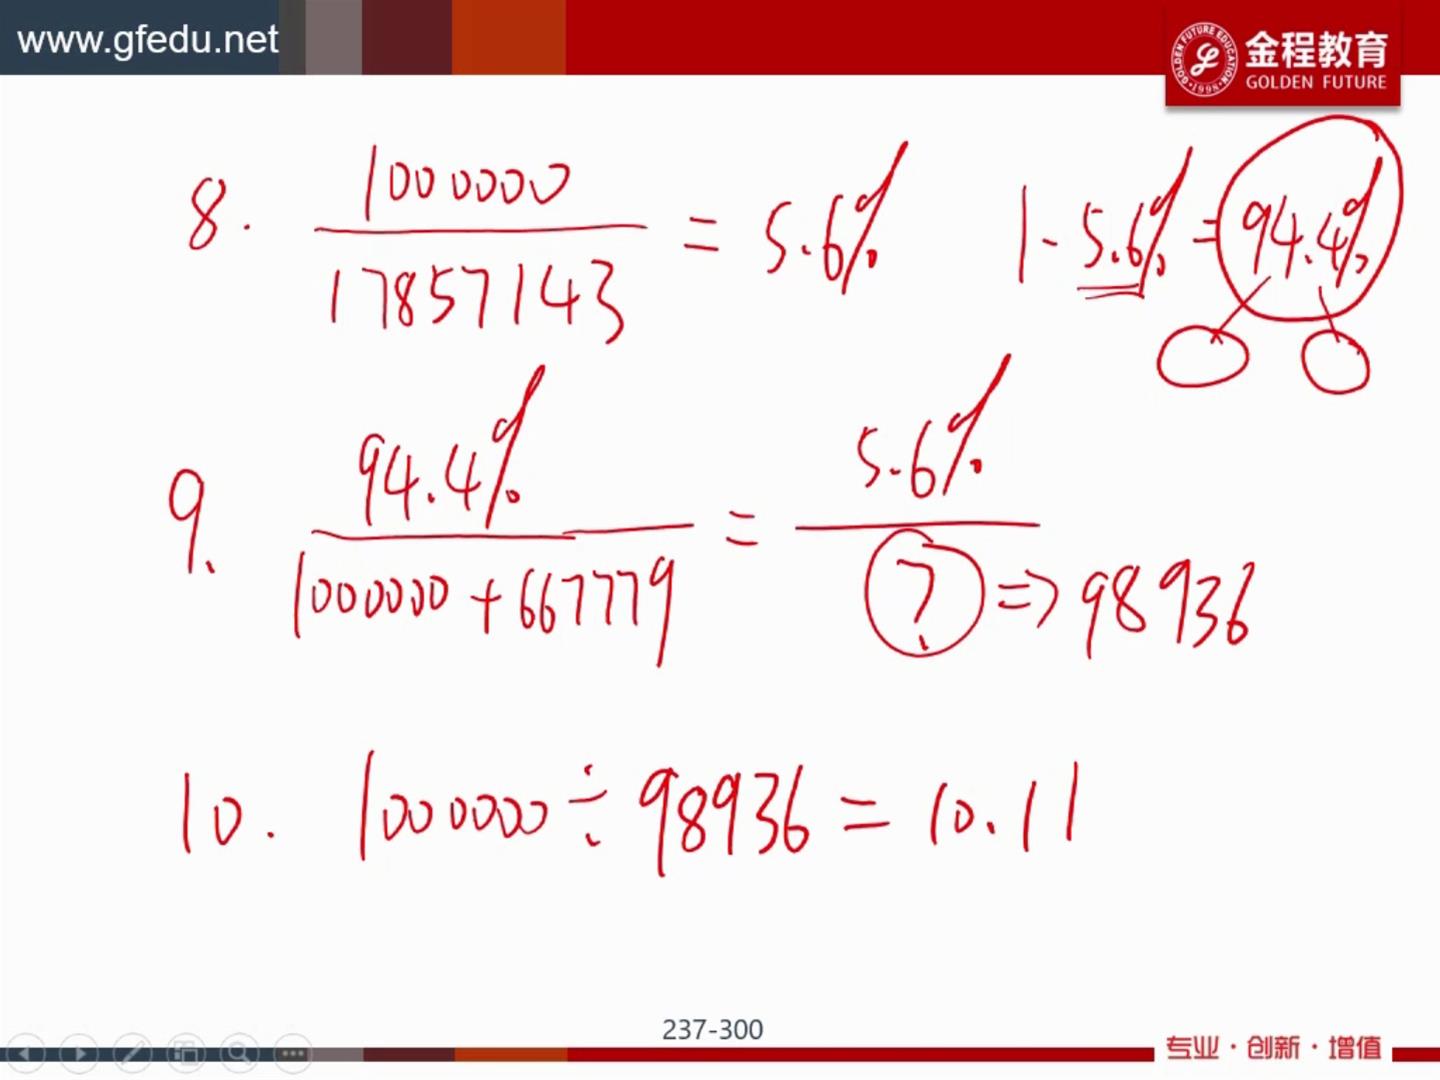 www.gfedu.net
金程教育
GOLDEN FUTURE
GOLDEN FUTURE EDUCATION
·1998·
8. 1000000/17857143 = 5.6% 1-5.6% = 94.4%
9. 94.4%/(1000000+667779) = 5.6%/? => 98936
10. 1000000÷98936 = 10.11
237-300
专业·创新·增值